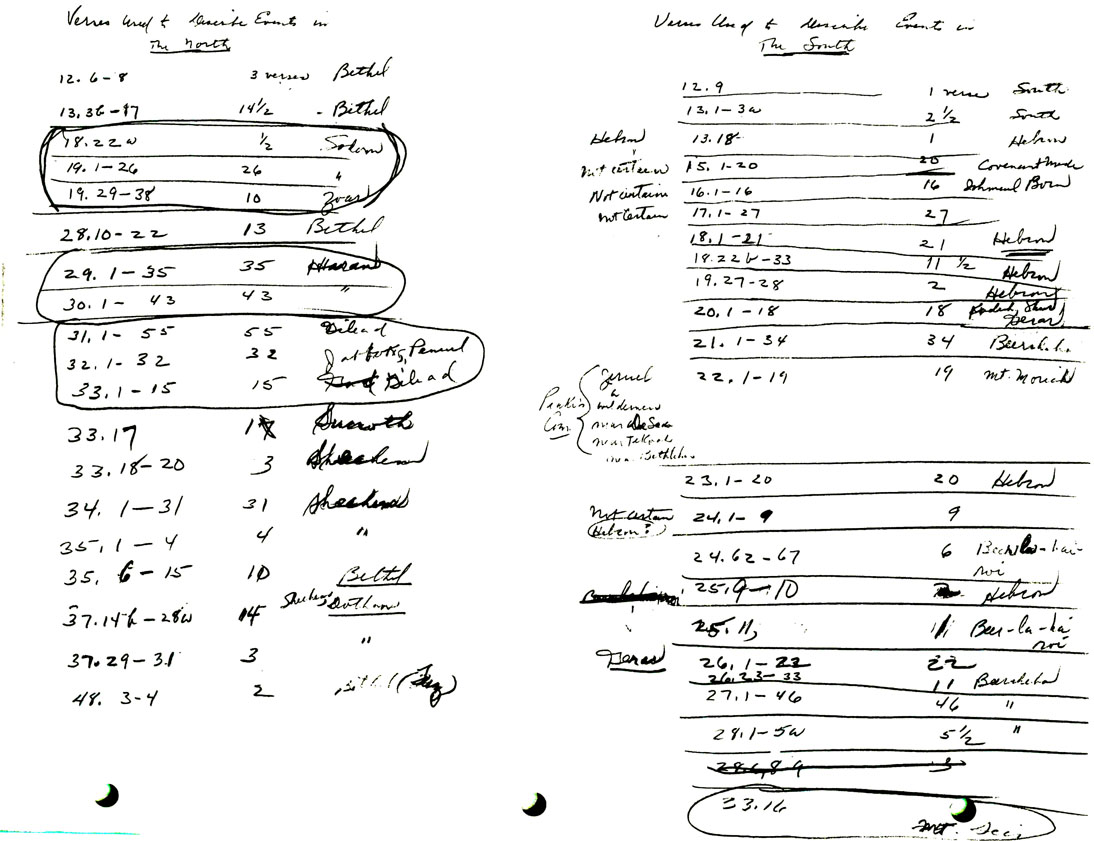 Verses Used to Describe Events in
The North
12. 6-8 3 verses Bethel
13.3b-17 14 1/2 - Bethel
18.22a 1/2 Sodom
19.1-26 26 "
19.29-38 10 Zoar
28.10-22 13 Bethel
29.1-35 35 Haran
30.1-43 43 "
31.1-55 55 Gilead
32.1-32 32 Jabbok, Penuel
33.1-15 15 Gilead
33.17 1 Succoth
33.18-20 3 Shechem
34.1-31 31 Shechem
35.1-4 4 "
35.6-15 10 Bethel
37.14b-28a 14 Shechem, Dothan
37.29-31 3 "
48.3-4 2 Bethel (Luz)
Verses Used to Describe Events in
The South
12.9 1 verse South
13.1-3a 2 1/2 South
Hebron 13.18 1 Hebron
Not certain 15.1-20 20 Covenant Made
Not certain 16.1-16 16 Ishmael Born
Not certain 17.1-27 27
18.1-21 21 Hebron
18.22b-33 11 1/2 Hebron
19.27-28 2 Hebron
20.1-18 18 Kadesh, Shur
Gerar
21.1-34 34 Beersheba
22.1-19 19 Mt. Moriah
Jeruel
wilderness
near Tekoah
near Bethlehem
23.1-20 20 Hebron
Not certain 24.1-9 9
Hebron?
24.62-67 6 Beer-la-hai-
roi
25.9-10 Hebron
25.11, 1 Beer-la-hai
roi
Gerar 26.1-22 22
26.23-33 11 Beersheba
27.1-46 46 "
28.1-5a 5 1/2 "
28.6,8-9 3
33.16
Mt. Seir